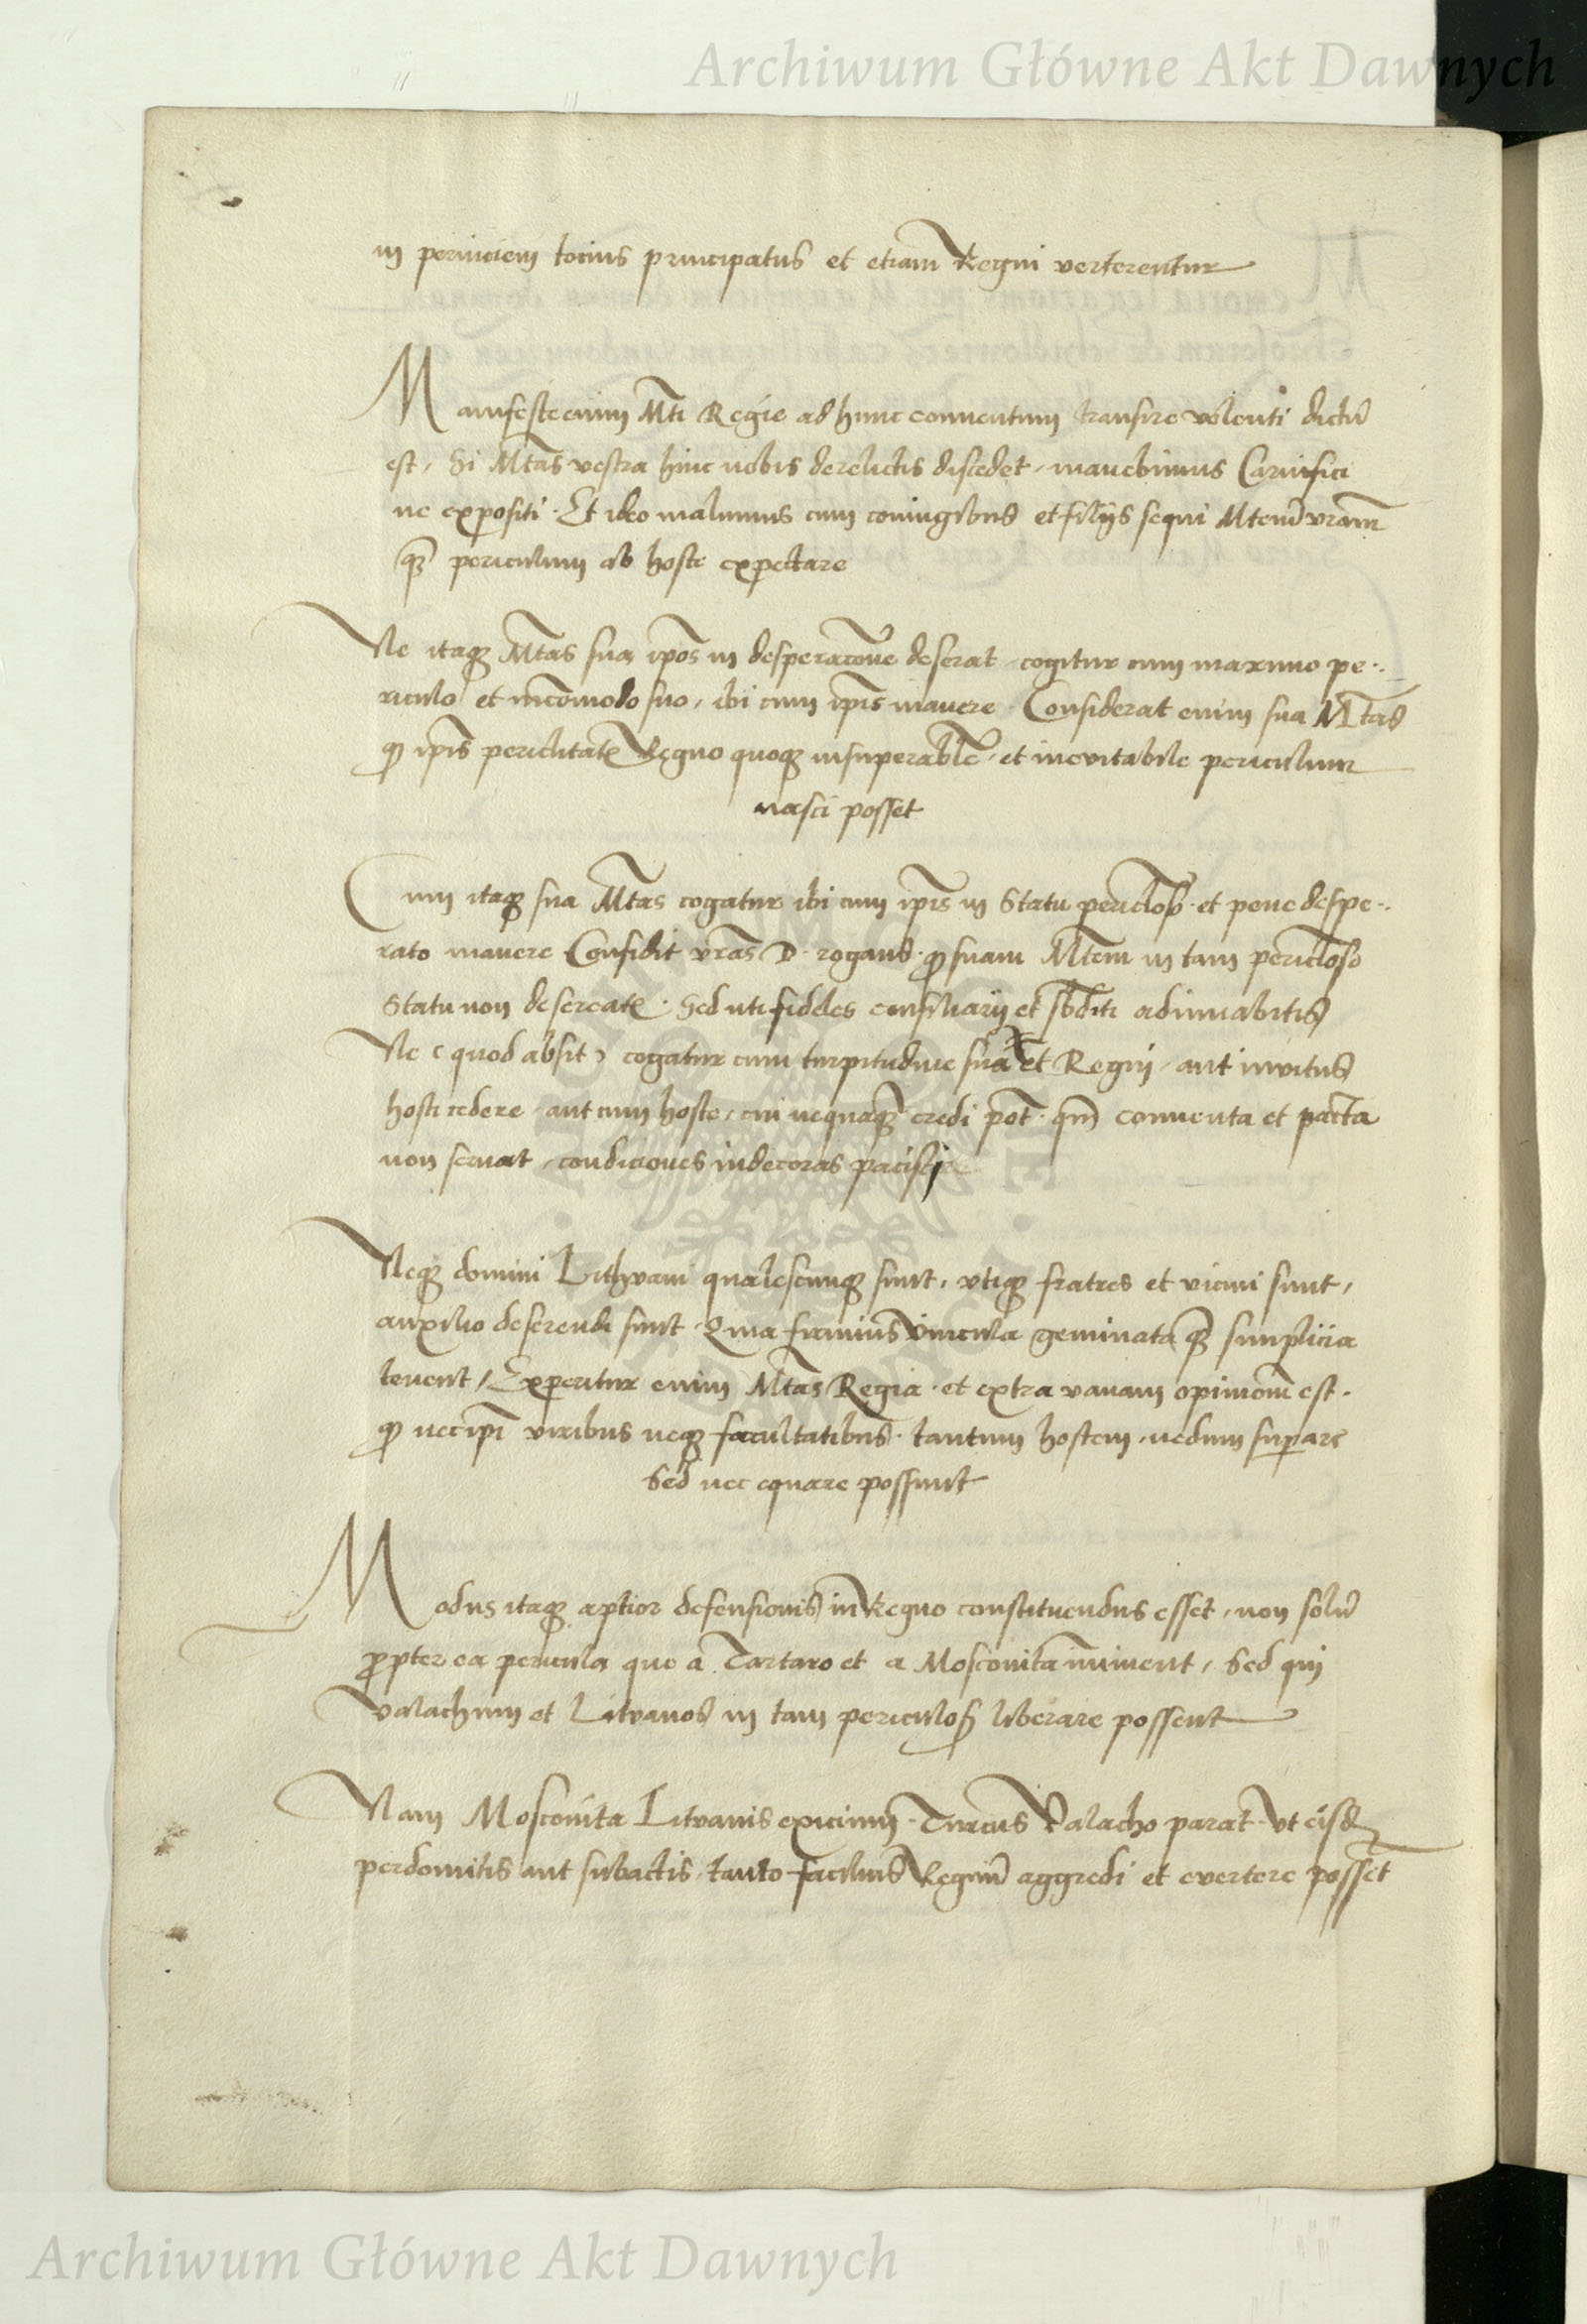 Archiwum Główne Akt Dawnych
in perniciem tocius principatus et etiam Regni verterentur
Manifeste enim Mti Regie ad hunc conventum transire volenti dictũ
est, Si Mtas vestra hinc nobis derelictis discedet, manebimus Carnifici
ne expositi. Et ideo malumus cum coniugibus et filijs sequi Mtem vram
q̃ periculum ab hoste expectare
Ne itaq; Mtas sua ip̃os in desperacõne deserat, cogitur cum maximo pe..
riculo et incõmodo suo, ibi cum ip̃is manere. Considerat enim sua Mtas
q̃ ip̃is periclitatis Regno quoq; insuperabile, et inevitabile periculum
nasci posset
Cum itaq; sua Mtas cogatur ibi cum ip̃is in Statu pericloso et pene despe..
rato manere Confidit vras D. rogans. q̃ suam Mtem in tam pericloso
Statu non desereatis. Sed uti fideles consiliarij et sbditi adiuuabitis
Ne (quod absit) cogatur cum turpitudine sua et Regni, aut invitus
hosti cedere, aut cum hoste, cui nequaq̃ credi pot̃. qm̃ conventa et pacta
non servat, condiciones indecoras pacisci
Neq; domini Lithvani qualescunq; sunt, utiq; fratres et vicini sunt,
auxilio deserendi sunt. Quia firmius vincula geminata q̃ simplicia
tenent, Experitur enim Mtas Regia. et extra vanam opinionẽ est.
q̃ nec ip̃i viribus neq; facultatibus. tantum hostem, nedum supare
Sed nec equare possunt
Modus itaq; aptior defensionis in Regno constituendus esset, non solũ
propter ea pericula que a Tartaro et a Moscovita iminent, Sed qui
Valachum et Litvanos in tam periculos liberare possent
Nam Moscovita Litvanis exicium. Turcus Valacho parat. Ut eisd
perdomitis aut subactis, tanto facilius Regnũ aggredi et evertere posset
Archiwum Główne Akt Dawnych